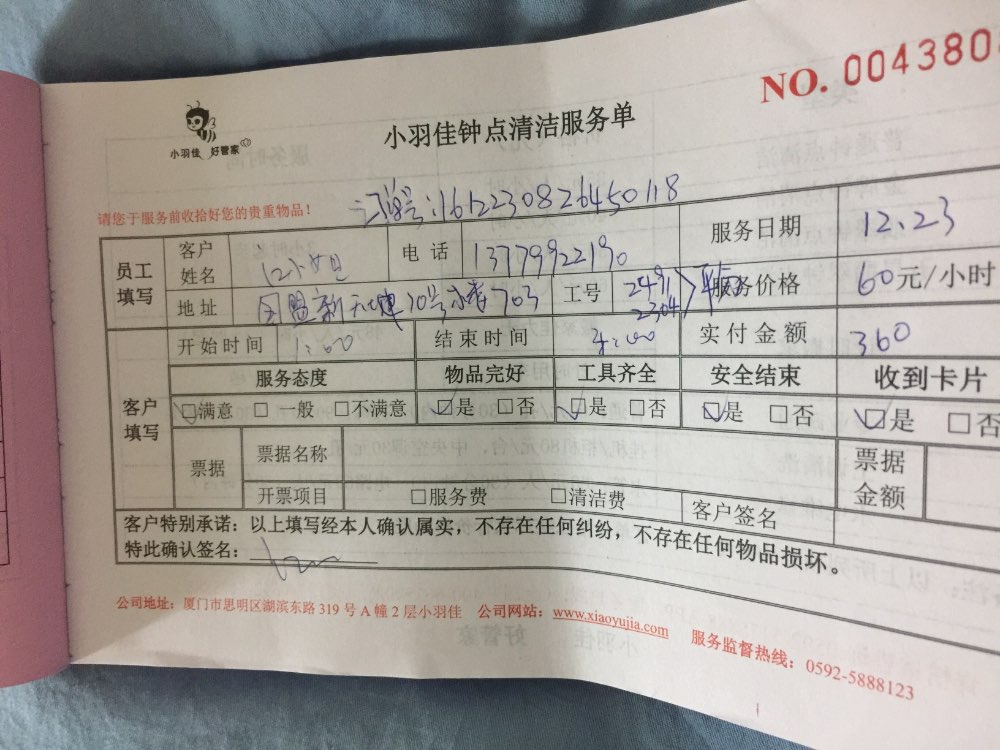 NO. 0043808
小羽佳 好管家
小羽佳钟点清洁服务单
请您于服务前收拾好您的贵重物品!
订单号:1612230826450118
员工填写 客户姓名 电话 13779922190 服务日期 12.23
地址 国盟新天地 70号 703 工号 2491 2304 服务价格 60元/小时
开始时间 1:00 结束时间 4:00 实付金额 360
客户填写 服务态度 物品完好 工具齐全 安全结束 收到卡片
☑满意 □一般 □不满意 ☑是 □否 ☑是 □否 ☑是 □否 ☑是 □否
票据 票据名称 票据金额
开票项目 □服务费 □清洁费 客户签名
客户特别承诺:以上填写经本人确认属实,不存在任何纠纷,不存在任何物品损坏。
特此确认签名:
公司地址:厦门市思明区湖滨东路319号A幢2层小羽佳 公司网站:www.xiaoyujia.com 服务监督热线:0592-5888123